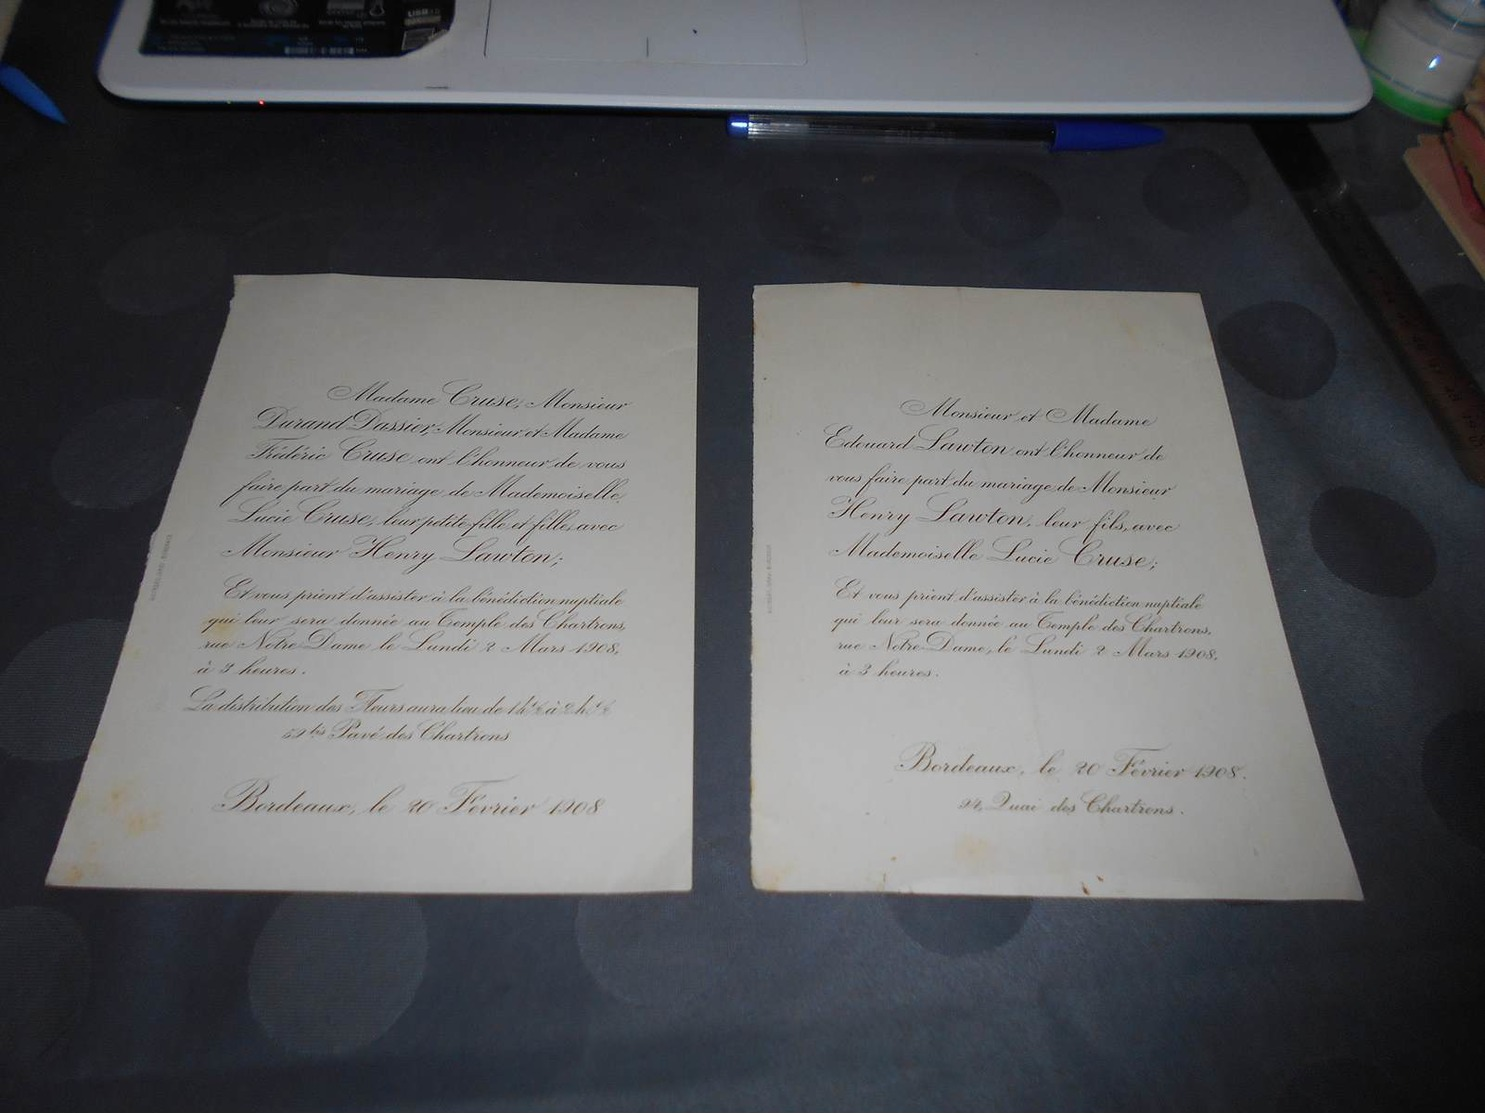 Madame Cruse, Monsieur
Durand Dassier, Monsieur et Madame
Frédéric Cruse ont l'honneur de vous
faire part du mariage de Mademoiselle
Lucie Cruse, leur petite fille et fille, avec
Monsieur Henry Lawton;
Et vous prient d'assister à la bénédiction nuptiale
qui leur sera donnée au Temple des Chartrons,
rue Notre-Dame le Lundi 2 Mars 1908,
à 3 heures.
La distribution des Fleurs aura lieu de 1h½ à 2h½
bis Pavé des Chartrons
Bordeaux, le 20 Février 1908
Monsieur et Madame
Edouard Lawton ont l'honneur de
vous faire part du mariage de Monsieur
Henry Lawton, leur fils, avec
Mademoiselle Lucie Cruse;
Et vous prient d'assister à la bénédiction nuptiale
qui leur sera donnée au Temple des Chartrons,
rue Notre-Dame, le Lundi 2 Mars 1908,
à 3 heures.
Bordeaux, le 20 Février 1908.
Quai des Chartrons.